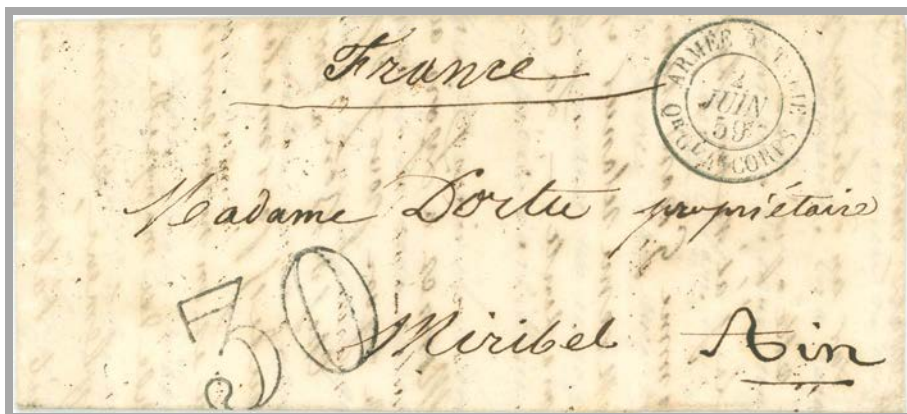 France
ARMÉE D'ITALIE
4
JUIN
59
CORPS
Madame Dortu propriétaire
30
Miribel Ain